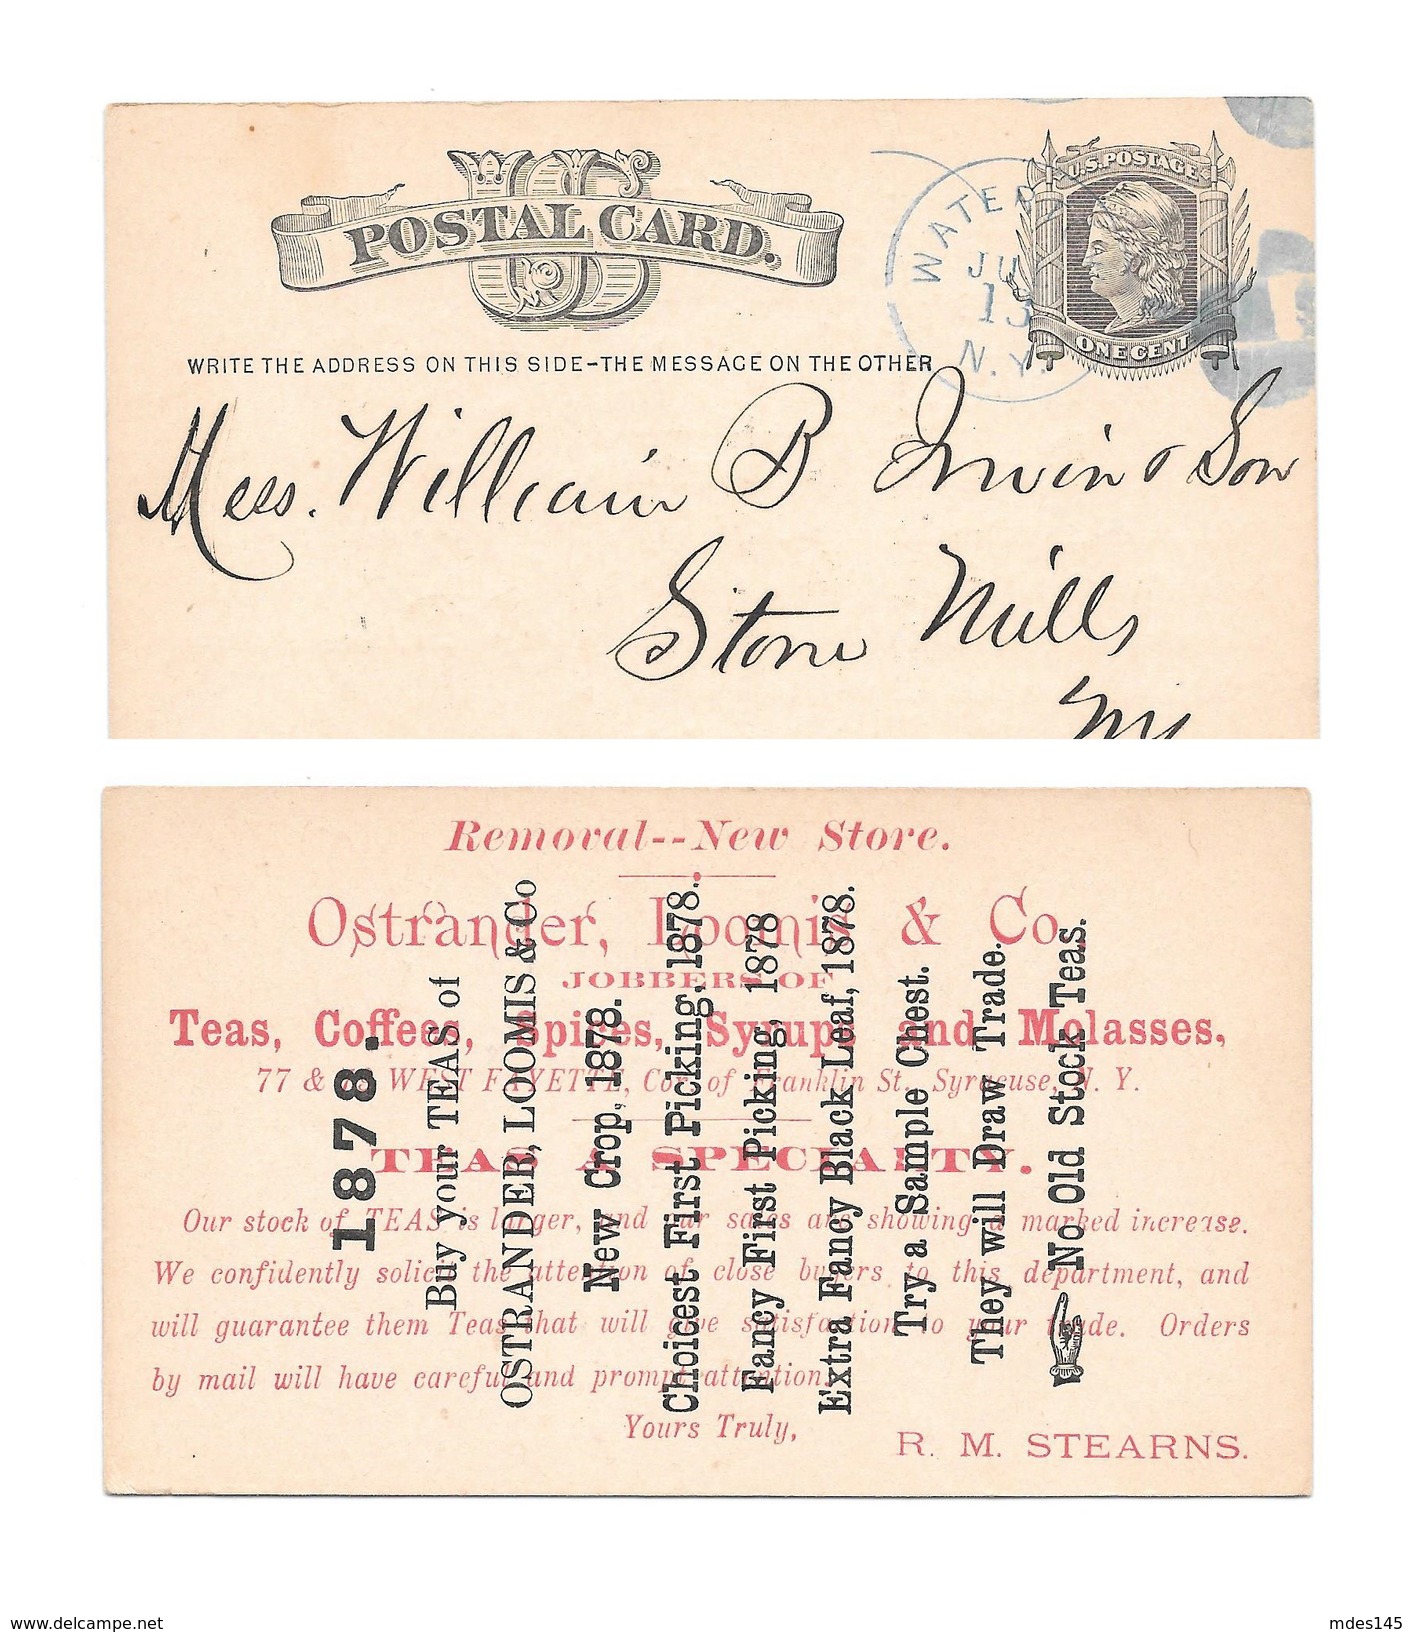 US
POSTAL CARD.
U.S. POSTAGE
ONE CENT
WATER
JU
13
N.Y.
WRITE THE ADDRESS ON THIS SIDE-THE MESSAGE ON THE OTHER
Mess. William B Irwin & Son
Stone Mills
NY
Removal--New Store.
Ostrander, Loomis & Co.,
JOBBERS OF
Teas, Coffees, Spices, Syrups and Molasses,
77 & WEST FAYETTE, Cor. of Franklin St., Syracuse, N. Y.
TEAS A SPECIALTY.
Our stock of TEAS is larger, and our sales are showing a marked increase.
We confidently solicit the attention of close buyers to this department, and
will guarantee them Teas that will give satisfaction to your trade. Orders
by mail will have careful and prompt attention.
Yours Truly,
R. M. STEARNS.
1878.
Buy your TEAS of
OSTRANDER, LOOMIS & Co
New Crop, 1878.
Choicest First Picking, 1878.
Fancy First Picking, 1878
Extra Fancy Black Leaf, 1878.
Try a Sample Chest.
They will Draw Trade.
No Old Stock Teas.
www.delcampe.net
mdes145